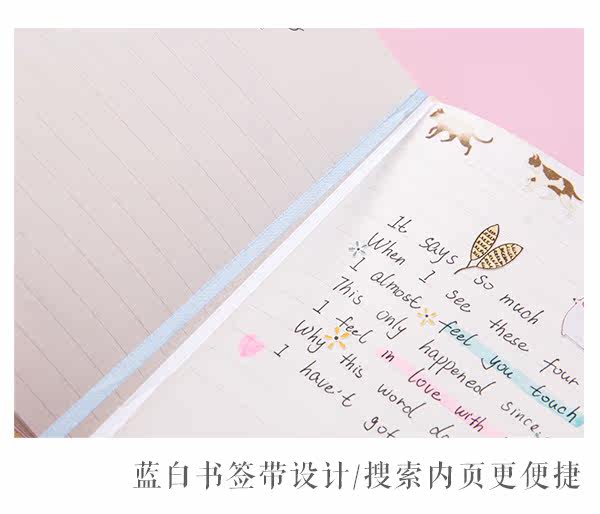 It says so much
When I see these four
I almost feel you touch
This only happened since
I feel in love with
Why this word do
I have't got
蓝白书签带设计/搜索内页更便捷